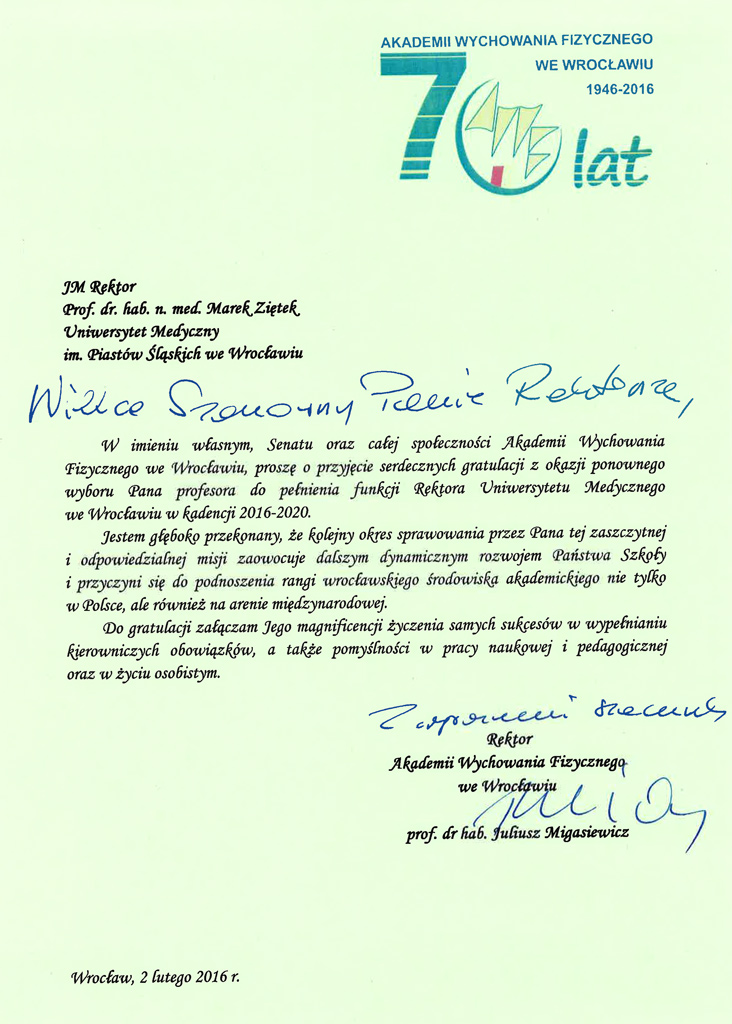 AKADEMII WYCHOWANIA FIZYCZNEGO
WE WROCŁAWIU
1946-2016
70 lat
AWF
JM Rektor
Prof. dr. hab. n. med. Marek Ziętek
Uniwersytet Medyczny
im. Piastów Śląskich we Wrocławiu
Wielce Szanowny Panie Rektorze,
W imieniu własnym, Senatu oraz całej społeczności Akademii Wychowania
Fizycznego we Wrocławiu, proszę o przyjęcie serdecznych gratulacji z okazji ponownego
wyboru Pana profesora do pełnienia funkcji Rektora Uniwersytetu Medycznego
we Wrocławiu w kadencji 2016-2020.
Jestem głęboko przekonany, że kolejny okres sprawowania przez Pana tej zaszczytnej
i odpowiedzialnej misji zaowocuje dalszym dynamicznym rozwojem Państwa Szkoły
i przyczyni się do podnoszenia rangi wrocławskiego środowiska akademickiego nie tylko
w Polsce, ale również na arenie międzynarodowej.
Do gratulacji załączam Jego magnificencji życzenia samych sukcesów w wypełnianiu
kierowniczych obowiązków, a także pomyślności w pracy naukowej i pedagogicznej
oraz w życiu osobistym.
Z wyrazami szacunku
Rektor
Akademii Wychowania Fizycznego
we Wrocławiu
prof. dr hab. Juliusz Migasiewicz
Wrocław, 2 lutego 2016 r.